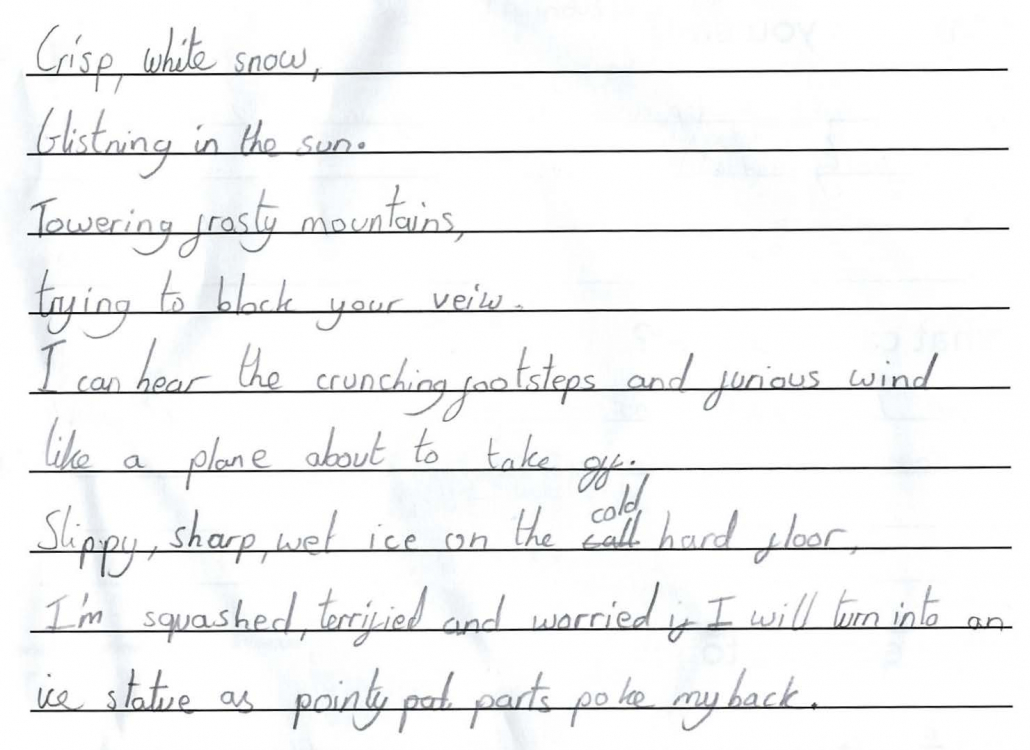 Crisp, white snow,
Glistning in the sun.
Towering frosty mountains,
trying to block your veiw.
I can hear the crunching footsteps and furious wind
like a plane about to take off.
Slippy, sharp, wet ice on the call cold hard floor,
I'm squashed, terrified and worried if I will turn into an
ice statue as pointy pat parts poke my back.